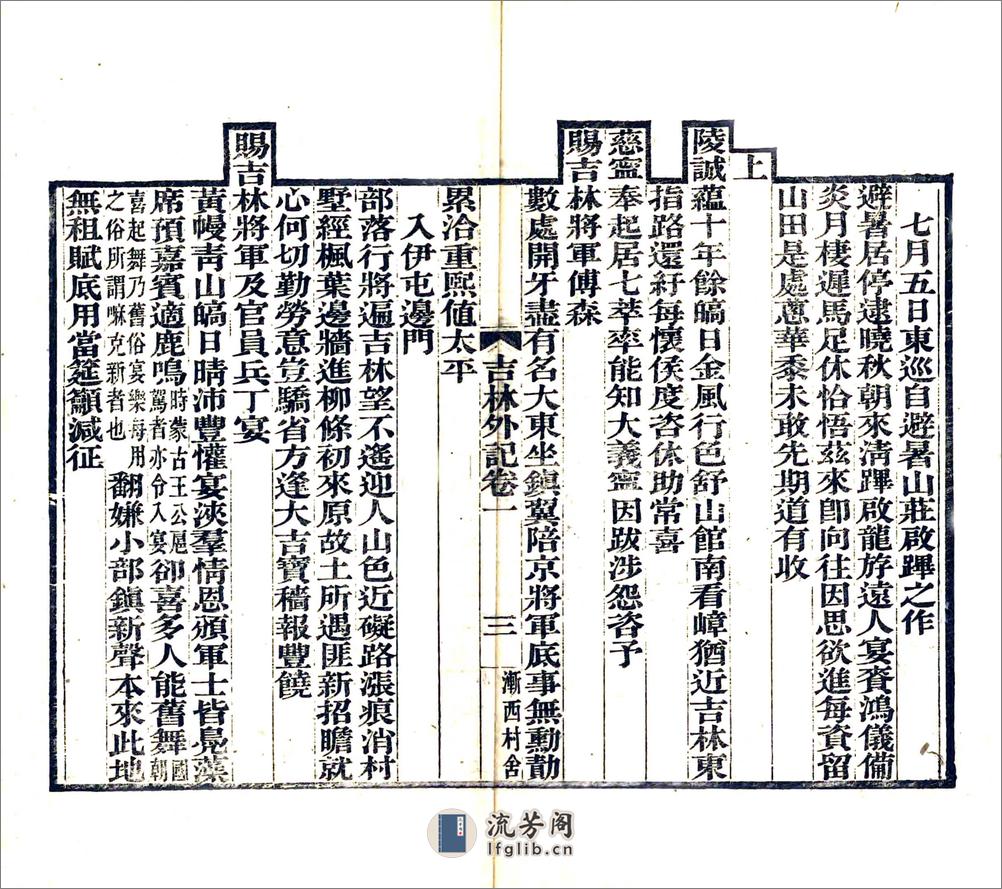 七月五日東巡自避暑山莊啟蹕之作
避暑居停逮曉秋朝來淸蹕啟龍斿遠人宴賚鴻儀備
炎月棲遲馬足休恰悟茲來卽向往因思欲進每資留
山田是處蔥華黍未敢先期道有收
上
陵誠蘊十年餘皜日金風行色舒山館南看嶂猶近吉林東
指路還紆每懷侯度咨休助常喜
慈寧奉起居七萃率能知大義寧因跋涉怨咨予
賜吉林將軍傅森
數處開牙盡有名大東坐鎮翼陪京將軍底事無勳勣
吉林外記卷一
三
漸西村舍
累洽重熙値太平
入伊屯邊門
部落行將遍吉林望不遙迎人山色近礙路漲痕消村
墅經楓葉邊牆進柳條初來原故土所遇匪新招瞻就
心何切勤勞意豈驕省方逢大吉寶穡報豐饒
賜吉林將軍及官員兵丁宴
黃幔靑山皜日晴沛豐懽宴浹羣情恩頒軍士皆鳧藻
席預嘉賓適鹿鳴時蒙古王公扈駕者亦令入宴卻喜多人能舊舞國朝
喜起舞乃舊俗宴樂每用之俗所謂嘛克新者也翻嫌小部鎮新聲本來此地
無租賦底用當筵籲減征
流芳阁
lfglib.cn